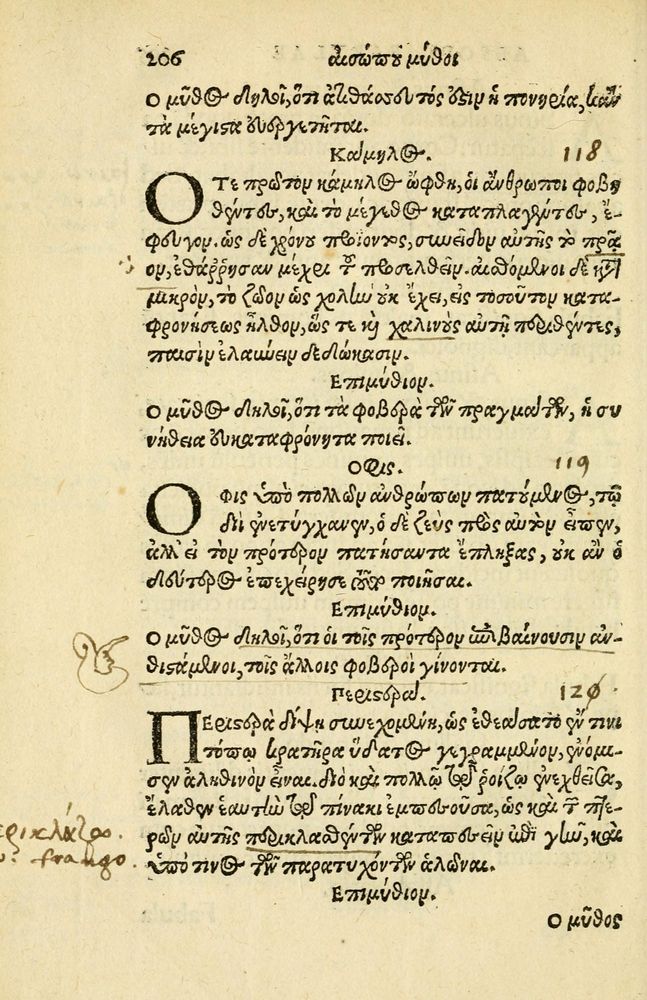 206 αισώπου μῦθοι
Ο μῦθος δηλοῖ, ὅτι ἀτιθάσσευτός ἐστιν ἡ πονηρία, κἂν
τὰ μέγιστα εὐεργετῆται.
Κάμηλος. 118
ΟΤΕ πρῶτον κάμηλος ὤφθη, οἱ ἄνθρωποι φοβη
θέντες, καὶ τὸ μέγεθος καταπλαγέντες, ἔ-
φευγον. ὡς δὲ χρόνου προϊόντος, συνεῖδον αὐτῆς τὸ πρᾶ
ον, ἐθάῤῥησαν μέχρι τοῦ προσελθεῖν. αἰσθόμενοι δὲ κατὰ
μικρὸν, τὸ ζῶον ὡς χολὴν οὐκ ἔχει, εἰς τοσοῦτον κατα-
φρονήσεως ἦλθον, ὥς τε καὶ χαλινοὺς αὐτῇ περιθέντες,
παισὶν ἐλαύνειν δεδώκασιν.
Επιμύθιον.
Ο μῦθος δηλοῖ, ὅτι τὰ φοβερὰ τῶν πραγμάτων, ἡ συ
νήθεια εὐκαταφρόνητα ποιεῖ.
Οφις. 119
ΟΦΙΣ ὑπὸ πολλῶν ἀνθρώπων πατούμενος, τῷ
διῒ ἐνετύγχανεν, ὁ δὲ ζεὺς πρὸς αὐτὸν εἶπεν,
ἀλλ' εἰ τὸν πρότερον πατήσαντα ἔπληξας, οὐκ ἂν ὁ
δεύτερος ἐπεχείρησε τοῦτο ποιῆσαι.
Επιμύθιον.
Ο μῦθος δηλοῖ, ὅτι οἱ τοῖς πρότερον ἐπιβαίνουσιν ἀν-
θιστάμενοι, τοῖς ἄλλοις φοβεροὶ γίνονται.
Περιστερά. 120
ΠΕριστερὰ δίψῃ συνεχομένη, ὡς ἐθεάσατο ἔν τινι
τόπῳ κρατῆρα ὕδατος γεγραμμένον, ἐνόμι-
σεν ἀληθινὸν εἶναι. διὸ καὶ πολλῷ τῷ ῥοίζῳ ἐνεχθεῖσα,
ἔλαθεν ἑαυτὴν τῷ πίνακι ἐμπεσοῦσα, ὡς καὶ τῶν πτε-
ρῶν αὐτῆς περικλασθέντων καταπεσεῖν ἐπὶ γῆν, καὶ
ὑπό τινος τῶν παρατυχόντων ἁλῶναι.
frango.
Επιμύθιον.
Ο μῦθος